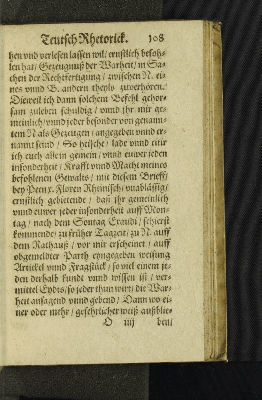 Teutsch Rhetorick. 108
ben vnd verlesen lassen wil / ernstlich befoh-
len hat / Gezeugnuß der Warheit / in Sa-
chen der Rechtfertigung / zwischen N. ei-
nes vnnd B. andern theyls zuverhören.
Dieweil ich dann solchem Befehl gehor-
sam zuleben schuldig / vnnd ihr mir ge-
meinlich / vnnd jeder besonder von genann-
tem N als Gezeugen / angegeben vnnd er-
nannt seind / So heische / lade vnnd citir
ich euch allein gemein / vnnd euwer jeden
insonderheit / Krafft vnnd Macht meines
befohlenen Gewalts / mit diesem Brieff /
bey Pen x. Floren Rheinisch / vnablässig /
ernstlich gebietende / daß ihr gemeinlich
vnnd euwer jeder insonderheit auff Mon-
tag / nach dem Sontag Exaudi / schierst
kommende / zu früher Tagzeit / zu N. auff
dem Rathauß / vor mir erscheinet / auff
obgemeldter Parth eyngegeben weisung
Artickel vnnd Fragstück / so viel einem je-
den derhalb kundt vnnd wissen ist / ver-
mittel Eydts / so jeder thun wirt / die War-
heit ansagend vnnd gebend / Dann wo ei-
ner oder mehr / gefehrlicher weiß außblie-
O iiij ben /